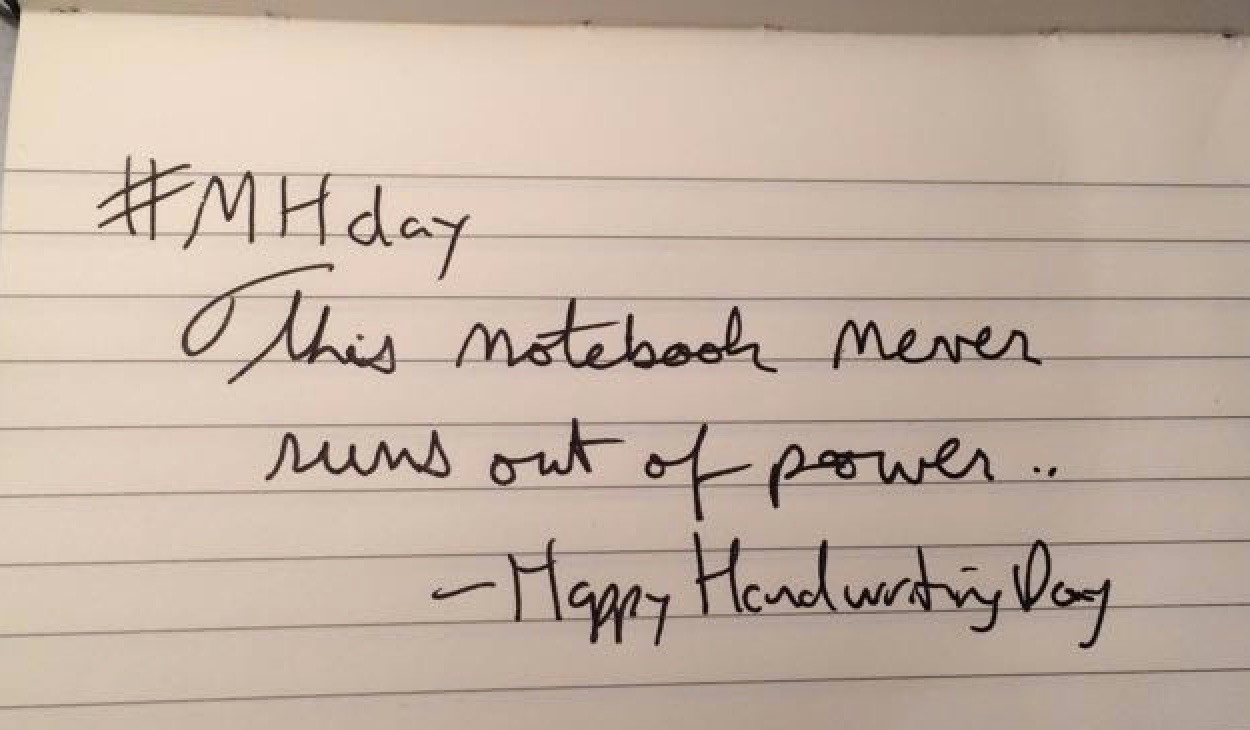 #MHday
This notebook never
runs out of power..
- Happy Handwriting Day